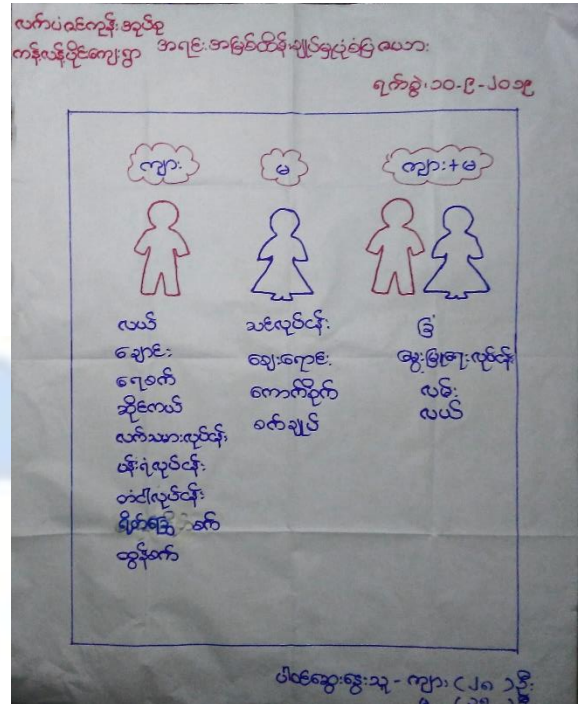 လက်ပံဝင်ကုန်းအုပ်စု
ကန့်လန့်ပိုင်ကျေးရွာ
အရင်းအမြစ်ထိန်းချုပ်မှုပုံစံပြဇယား
ရက်စွဲ၊ ၁၀-၉-၂၀၁၉
ကျား
မ
ကျား+မ
လယ်
ချောင်း
ရေစက်
ဆိုင်ကယ်
လက်သမားလုပ်ငန်း
ပန်းရံလုပ်ငန်း
တံငါလုပ်ငန်း
စက်
ထွန်စက်
လုပ်ငန်း
ဈေးရောင်း
ကောက်စိုက်
စက်ချုပ်
ခြံ
မွေးမြူရေးလုပ်ငန်း
လမ်း
လယ်
ပါဝင်ဆွေးနွေးသူ - ကျား (၂၈) ဦး